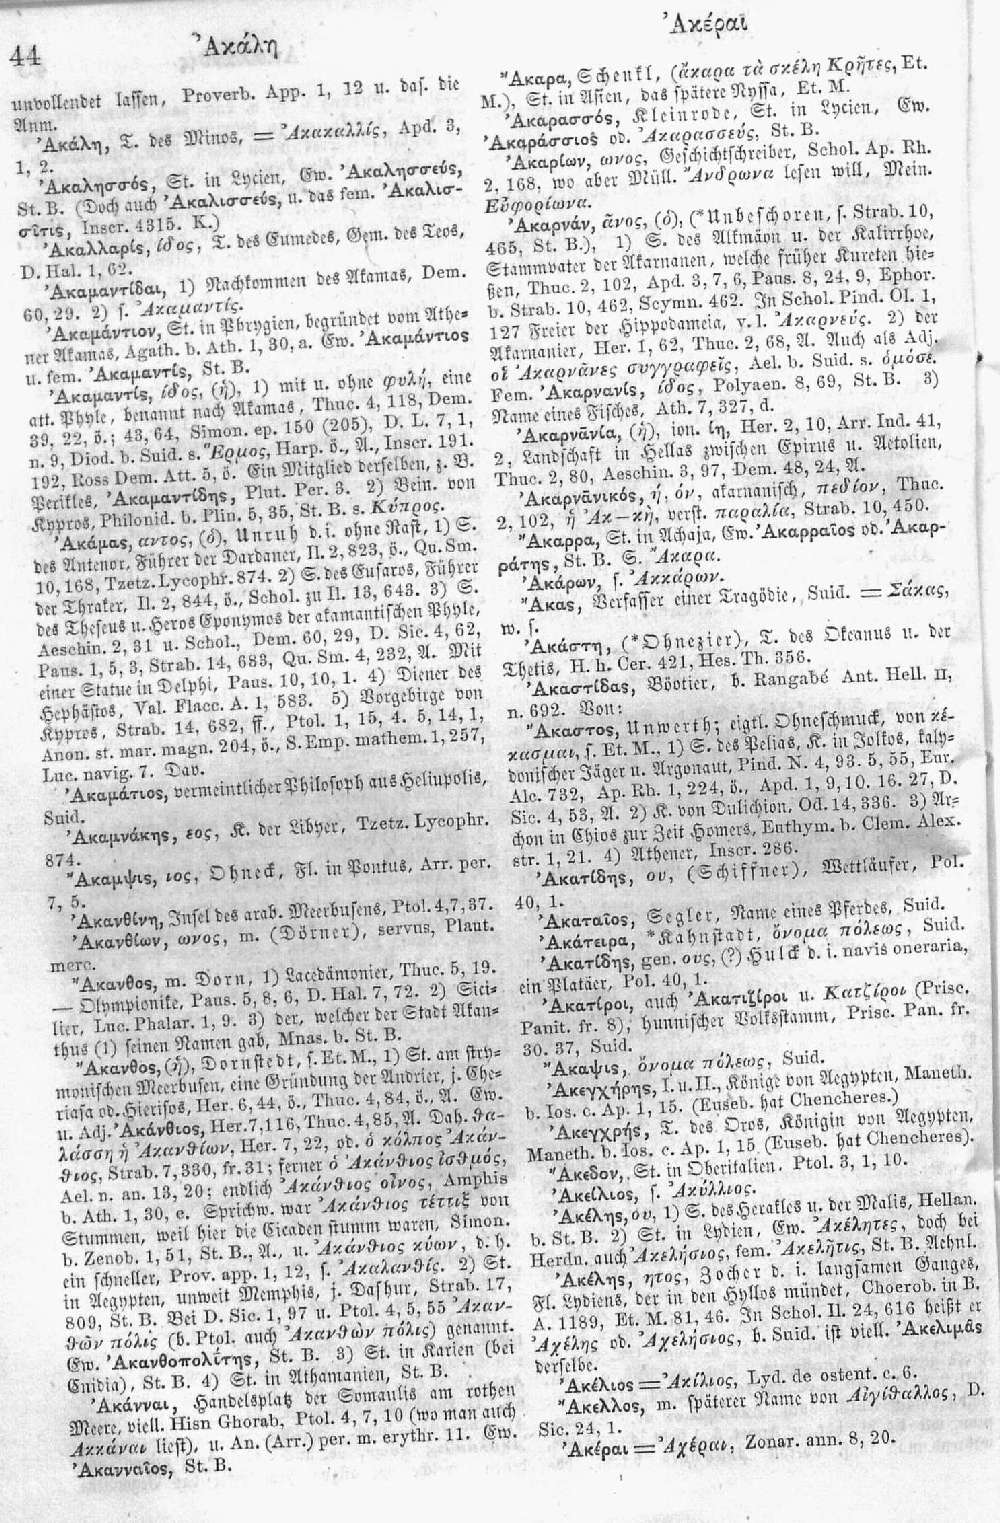 44
Ἀκάλη
Ἀκέραι
unvollendet lassen, Proverb. App. 1, 12 u. das. die
Anm.
Ἀκάλη, T. des Minos, = Ἀκακαλλίς, Apd. 3,
1, 2.
Ἀκαλησσός, St. in Lycien, Ew. Ἀκαλησσεύς,
St. B. (Doch auch Ἀκαλισσεύς, u. das fem. Ἀκαλισ-
σῖτις, Inscr. 4315. K.)
Ἀκαλλαρίς, ίδος, T. des Eumedes, Gem. des Teos,
D. Hal. 1, 62.
Ἀκαμαντίδαι, 1) Nachkommen des Akamas, Dem.
60, 29. 2) s. Ἀκαμαντίς.
Ἀκαμάντιον, St. in Phrygien, begründet vom Athe-
ner Akamas, Agath. b. Ath. 1, 30, a. Ew. Ἀκαμάντιος
u. fem. Ἀκαμαντίς, St. B.
Ἀκαμαντίς, ίδος, (ἡ), 1) mit u. ohne φυλή, eine
att. Phyle, benannt nach Akamas, Thuc. 4, 118, Dem.
39, 22, ö.; 43, 64, Simon. ep. 150 (205), D. L. 7, 1,
n. 9, Diod. b. Suid. s. Ἕρμος, Harp. ö., A., Inscr. 191.
192, Ross Dem. Att. 5, ö. Ein Mitglied derselben, z. B.
Perikles, Ἀκαμαντίδης, Plut. Per. 3. 2) Bein. von
Kypros, Philonid. b. Plin. 5, 35, St. B. s. Κύπρος.
Ἀκάμας, αντος, (ὁ), Unruh d. i. ohne Rast, 1) S.
des Antenor, Führer der Dardaner, Il. 2, 823, ö., Qu. Sm.
10, 168, Tzetz. Lycophr. 874. 2) S. des Eusoros, Führer
der Thraker, Il. 2, 844, ö., Schol. zu Il. 13, 643. 3) S.
des Theseus u. Heros Eponymos der akamantischen Phyle,
Aeschin. 2, 31 u. Schol., Dem. 60, 29, D. Sic. 4, 62,
Paus. 1, 5, 3, Strab. 14, 683, Qu. Sm. 4, 232, A. Mit
einer Statue in Delphi, Paus. 10, 10, 1. 4) Diener des
Hephästos, Val. Flacc. A. 1, 583. 5) Vorgebirge von
Kypros, Strab. 14, 682, ff., Ptol. 1, 15, 4. 5, 14, 1,
Anon. st. mar. magn. 204, ö., S. Emp. mathem. 1, 257,
Luc. navig. 7. Dav.
Ἀκαμάτιος, vermeintlicher Philosoph aus Heliupolis,
Suid.
Ἀκαμνάκης, εος, K. der Libyer, Tzetz. Lycophr.
874.
Ἄκαμψις, ιος, Ohneck, Fl. in Pontus, Arr. per.
7, 5.
Ἀκανθίνη, Insel des arab. Meerbusens, Ptol. 4, 7, 37.
Ἀκανθίων, ωνος, m. (Dörner), servus, Plaut.
merc.
Ἄκανθος, m. Dorn, 1) Lacedämonier, Thuc. 5, 19.
— Olympionike, Paus. 5, 8, 6, D. Hal. 7, 72. 2) Sici-
lier, Luc. Phalar. 1, 9. 3) der, welcher der Stadt Akan-
thus (1) seinen Namen gab, Mnas. b. St. B.
Ἄκανθος, (ἡ), Dornstedt, s. Et. M., 1) St. am stry-
monischen Meerbusen, eine Gründung der Andrier, j. Che-
riasa od. Hierisos, Her. 6, 44, ö., Thuc. 4, 84, ö., A. Ew.
u. Adj. Ἀκάνθιος, Her. 7, 116, Thuc. 4, 85, A. Dah. θά-
λασση ἡ Ἀκανθίων, Her. 7, 22, od. ὁ κόλπος Ἀκάν-
θιος, Strab. 7, 330, fr. 31; ferner ὁ Ἀκάνθιος ἰσθμός,
Ael. n. an. 13, 20; endlich Ἀκάνθιος οἶνος, Amphis
b. Ath. 1, 30, e. Sprichw. war Ἀκάνθιος τέττιξ von
Stummen, weil hier die Cicaden stumm waren, Simon.
b. Zenob. 1, 51, St. B., A., u. Ἀκάνθιος κύων, d. h.
ein schneller, Prov. app. 1, 12, s. Ἀκαλανθίς. 2) St.
in Aegypten, unweit Memphis, j. Dashur, Strab. 17,
809, St. B. Bei D. Sic. 1, 97 u. Ptol. 4, 5, 55 Ἀκαν-
θῶν πόλις (b. Ptol. auch Ἀκανθὼν πόλις) genannt.
Ew. Ἀκανθοπολίτης, St. B. 3) St. in Karien (bei
Cnidia), St. B. 4) St. in Athamanien, St. B.
Ἀκάνναι, Handelsplatz der Somaulis am rothen
Meere, viell. Hisn Ghorab, Ptol. 4, 7, 10 (wo man auch
Ἀκκάναι liest), u. An. (Arr.) per. m. erythr. 11. Ew.
Ἀκανναῖος, St. B.
Ἄκαρα, Schenkl, (ἄκαρα τὰ σκέλη Κρῆτες, Et.
M.), St. in Asien, das spätere Nyssa, Et. M.
Ἀκαρασσός, Kleinrode, St. in Lycien, Ew.
Ἀκαράσσιος od. Ἀκαρασσεύς, St. B.
Ἀκαρίων, ωνος, Geschichtschreiber, Schol. Ap. Rh.
2, 168, wo aber Müll. Ἄνδρωνα lesen will, Mein.
Εὐφορίωνα.
Ἀκαρνάν, ᾶνος, (ὁ), (*Unbeschoren, s. Strab. 10,
465, St. B.), 1) S. des Alkmäon u. der Kalirrhoe,
Stammvater der Akarnanen, welche früher Kureten hie-
ßen, Thuc. 2, 102, Apd. 3, 7, 6, Paus. 8, 24, 9, Ephor.
b. Strab. 10, 462, Scymn. 462. In Schol. Pind. Ol. 1,
127 Freier der Hippodameia, v. l. Ἀκαρνεύς. 2) der
Akarnanier, Her. 1, 62, Thuc. 2, 68, A. Auch als Adj.
οἱ Ἀκαρνᾶνες συγγραφεῖς, Ael. b. Suid. s. ὁμόσε.
Fem. Ἀκαρνανίς, ίδος, Polyaen. 8, 69, St. B. 3)
Name eines Fisches, Ath. 7, 327, d.
Ἀκαρνᾱνία, (ἡ), ion. ίη, Her. 2, 10, Arr. Ind. 41,
2, Landschaft in Hellas zwischen Epirus u. Aetolien,
Thuc. 2, 80, Aeschin. 3, 97, Dem. 48, 24, A.
Ἀκαρνᾱνικός, ή, όν, akarnanisch, πεδίον, Thuc.
2, 102, ἡ Ἀκ—κὴ, verst. παραλία, Strab. 10, 450.
Ἄκαρρα, St. in Achaja, Ew. Ἀκαρραῖος od. Ἀκαρ-
ράτης, St. B. S. Ἄκαρα.
Ἀκάρων, s. Ἀκκάρων.
Ἄκας, Verfasser einer Tragödie, Suid. = Σάκας,
w. s.
Ἀκάστη, (*Ohnezier), T. des Okeanus u. der
Thetis, H. h. Cer. 421, Hes. Th. 356.
Ἀκαστίδας, Böotier, b. Rangabé Ant. Hell. II,
n. 692. Von:
Ἄκαστος, Unwerth; eigtl. Ohneschmuck, von κέ-
κασμαι, s. Et. M., 1) S. des Pelias, K. in Jolkos, kaly-
donischer Jäger u. Argonaut, Pind. N. 4, 93. 5, 55, Eur.
Alc. 732, Ap. Rh. 1, 224, ö., Apd. 1, 9, 10. 16. 27, D.
Sic. 4, 53, A. 2) K. von Dulichion, Od. 14, 336. 3) Ar-
chon in Chios zur Zeit Homers, Euthym. b. Clem. Alex.
str. 1, 21. 4) Athener, Inscr. 286.
Ἀκατίδης, ου, (Schiffner), Wettläufer, Pol.
40, 1.
Ἀκαταῖος, Segler, Name eines Pferdes, Suid.
Ἀκάτειρα, *Kahnstadt, ὄνομα πόλεως, Suid.
Ἀκατίδης, gen. ους, (?) Hulck d. i. navis oneraria,
ein Platäer, Pol. 40, 1.
Ἀκατίροι, auch Ἀκατιζίροι u. Κατζίροι (Prisc.
Panit. fr. 8), hunnischer Volksstamm, Prisc. Pan. fr.
30. 37, Suid.
Ἄκαψις, ὄνομα πόλεως, Suid.
Ἀκεγχήρης, I. u. II., Könige von Aegypten, Maneth.
b. Ios. c. Ap. 1, 15. (Euseb. hat Chencheres.)
Ἀκεγχρής, T. des Oros, Königin von Aegypten,
Maneth. b. Ios. c. Ap. 1, 15 (Euseb. hat Chencheres).
Ἄκεδον, St. in Oberitalien. Ptol. 3, 1, 10.
Ἀκείλιος, s. Ἀκύλλιος.
Ἀκέλης, ου, 1) S. des Herakles u. der Malis, Hellan.
b. St. B. 2) St. in Lydien, Ew. Ἀκέλητες, doch bei
Herdn. auch Ἀκελήσιος, fem. Ἀκελῆτις, St. B. Aehnl.
Ἀκέλης, ητος, Zocher d. i. langsamen Ganges,
Fl. Lydiens, der in den Hyllos mündet, Choerob. in B.
A. 1189, Et. M. 81, 46. In Schol. Il. 24, 616 heißt er
Ἀχέλης od. Ἀχελήσιος, b. Suid. ist viell. Ἀκελιμᾶς
derselbe.
Ἀκέλιος = Ἀκίλιος, Lyd. de ostent. c. 6.
Ἄκελλος, m. späterer Name von Αἰγίθαλλος, D.
Sic. 24, 1.
Ἀκέραι = Ἀχέραι, Zonar. ann. 8, 20.